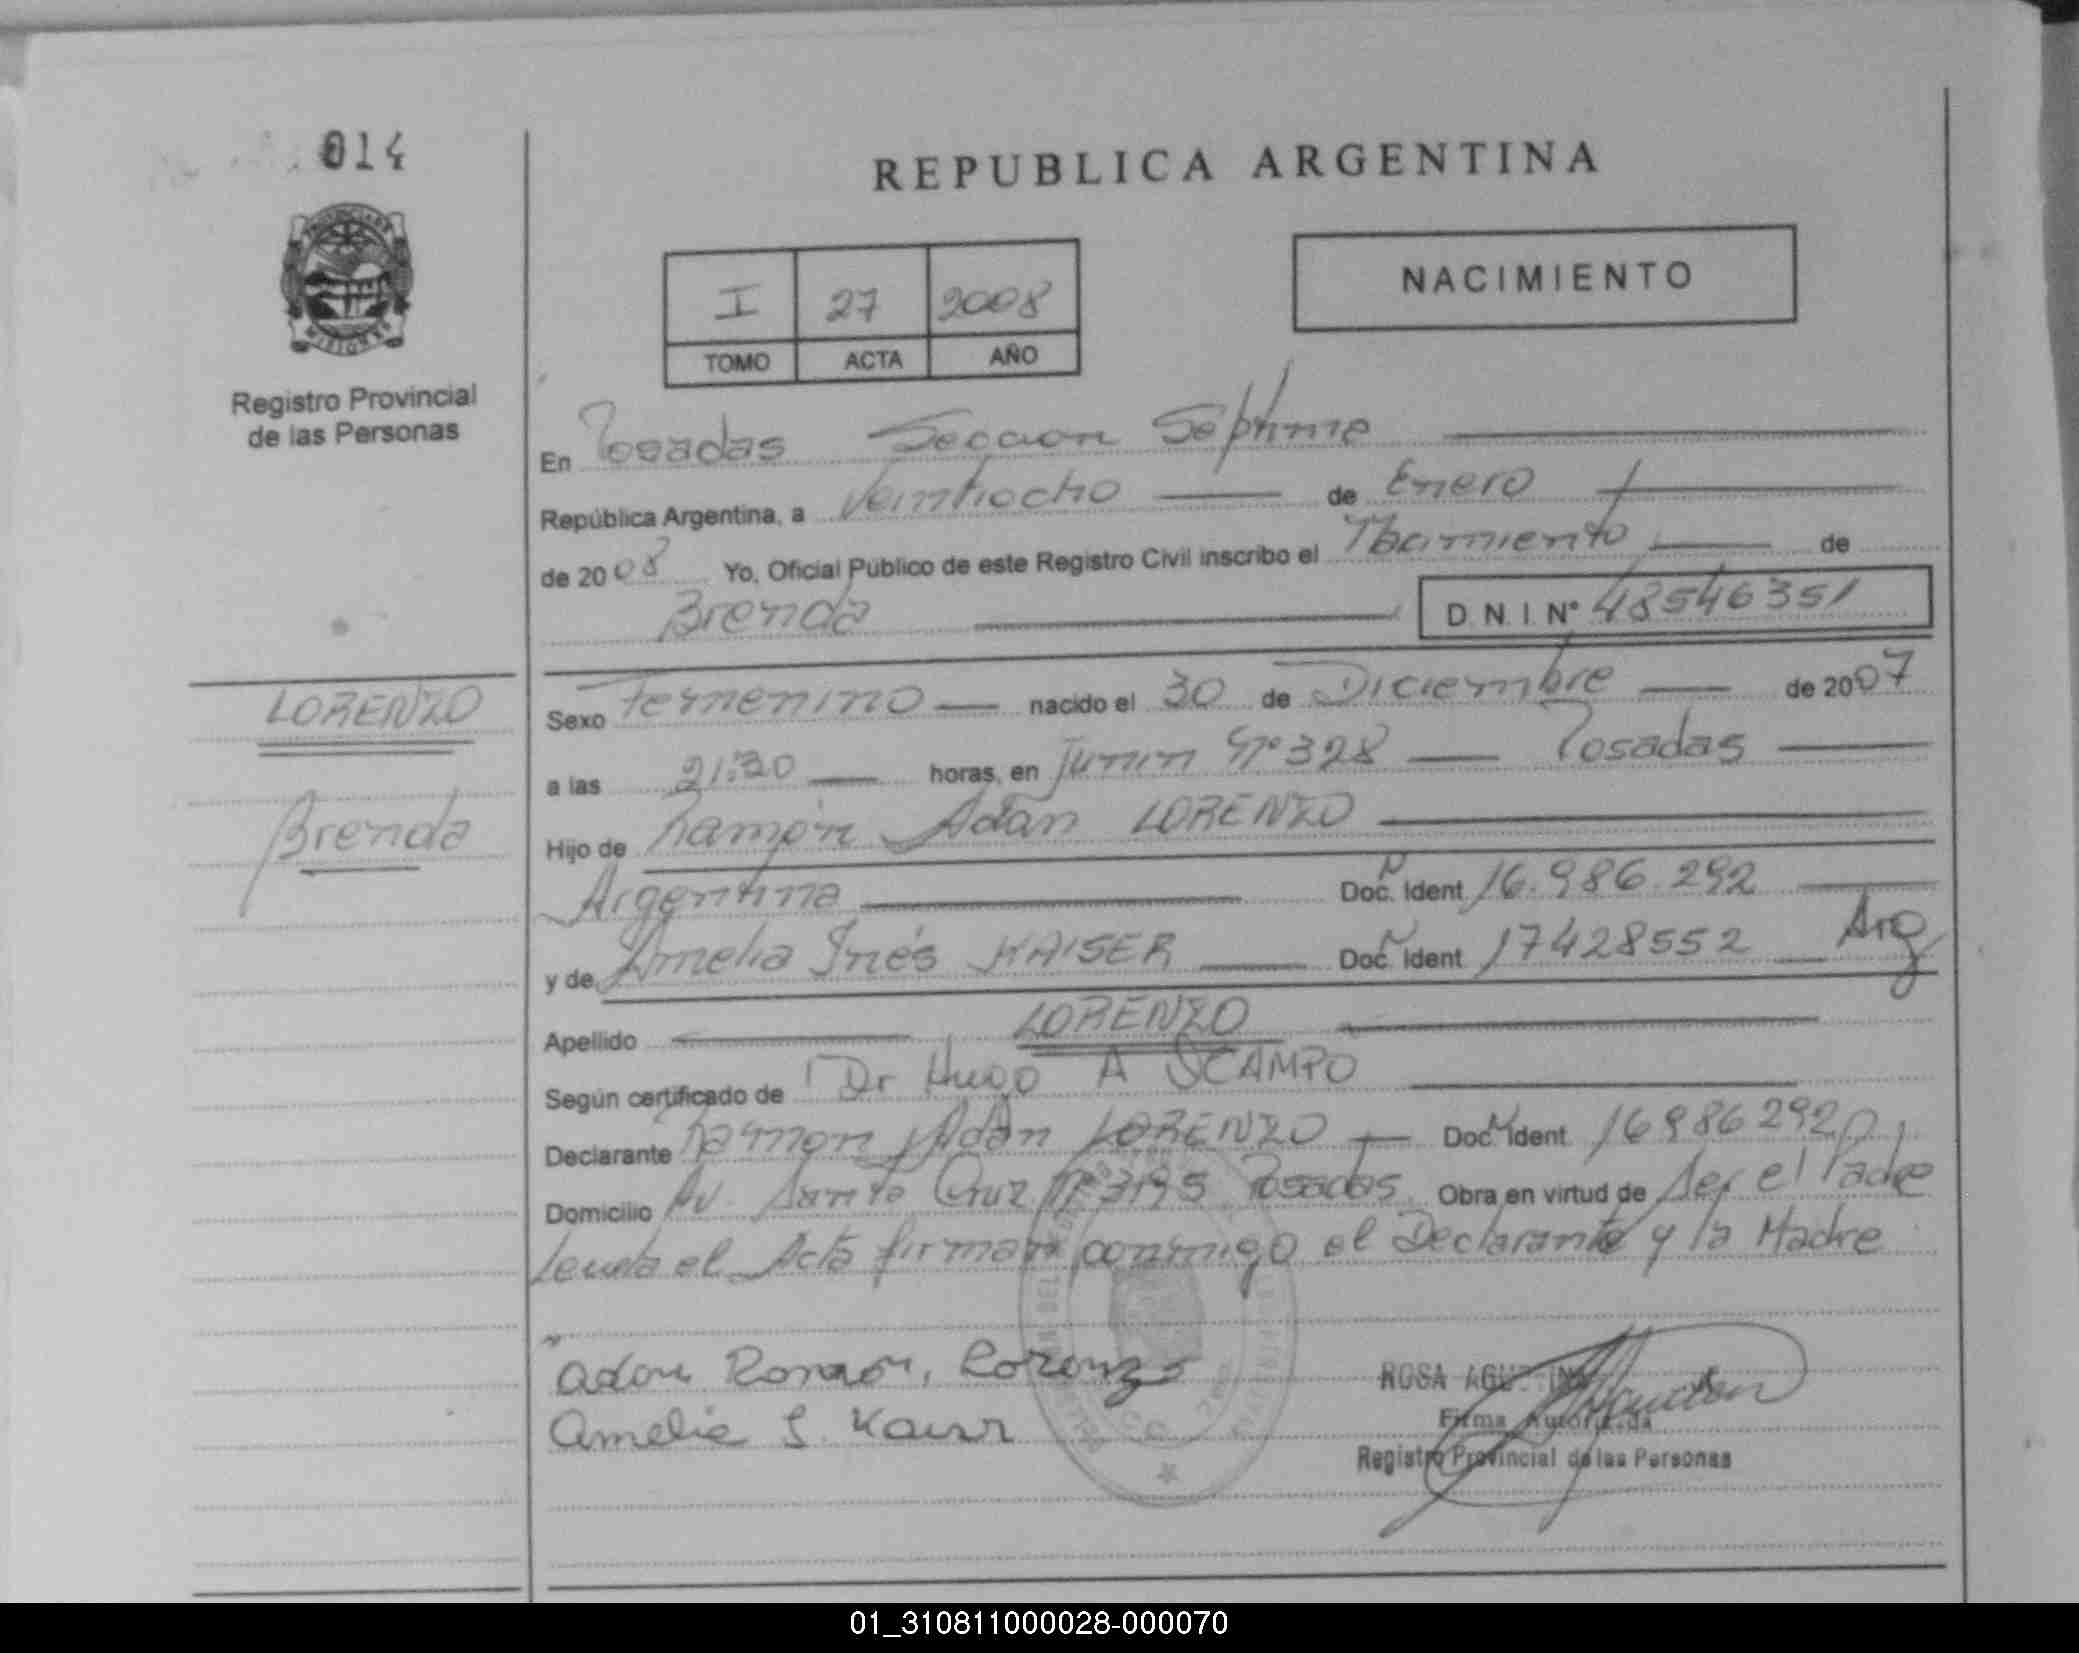 014
REPUBLICA ARGENTINA
PROVINCIA DE
MISIONES
Registro Provincial
de las Personas
NACIMIENTO
I 27 2008
TOMO ACTA AÑO
En Posadas Seccion Septima
República Argentina, a Veintiocho de Enero
de 2008 Yo, Oficial Público de este Registro Civil inscribo el Nacimiento de
Brenda D.N.I. N° 48546351
LORENZO
Brenda
Sexo Femenino nacido el 30 de Diciembre de 2007
a las 21:30 horas, en Junin Nº 328 Posadas
Hijo de Ramón Adán LORENZO
Argentina Doc. Ident. 16.986.292
y de Amelia Inés KAISER Doc. Ident. 17428552 Arg
Apellido LORENZO
Según certificado de Dr Hugo A OCAMPO
Declarante Ramon Adán LORENZO Doc. Ident. 16986292
Domicilio Av. Santa Cruz Nº 3195 Posadas Obra en virtud de Ser el Padre
Leida el Acta firman conmigo el Declarante y la Madre
Adan Ramon, Lorenzo
Amelia I. Kaiser
ROSA
Firma Autorizada
Registro Provincial de las Personas
01_310811000028-000070